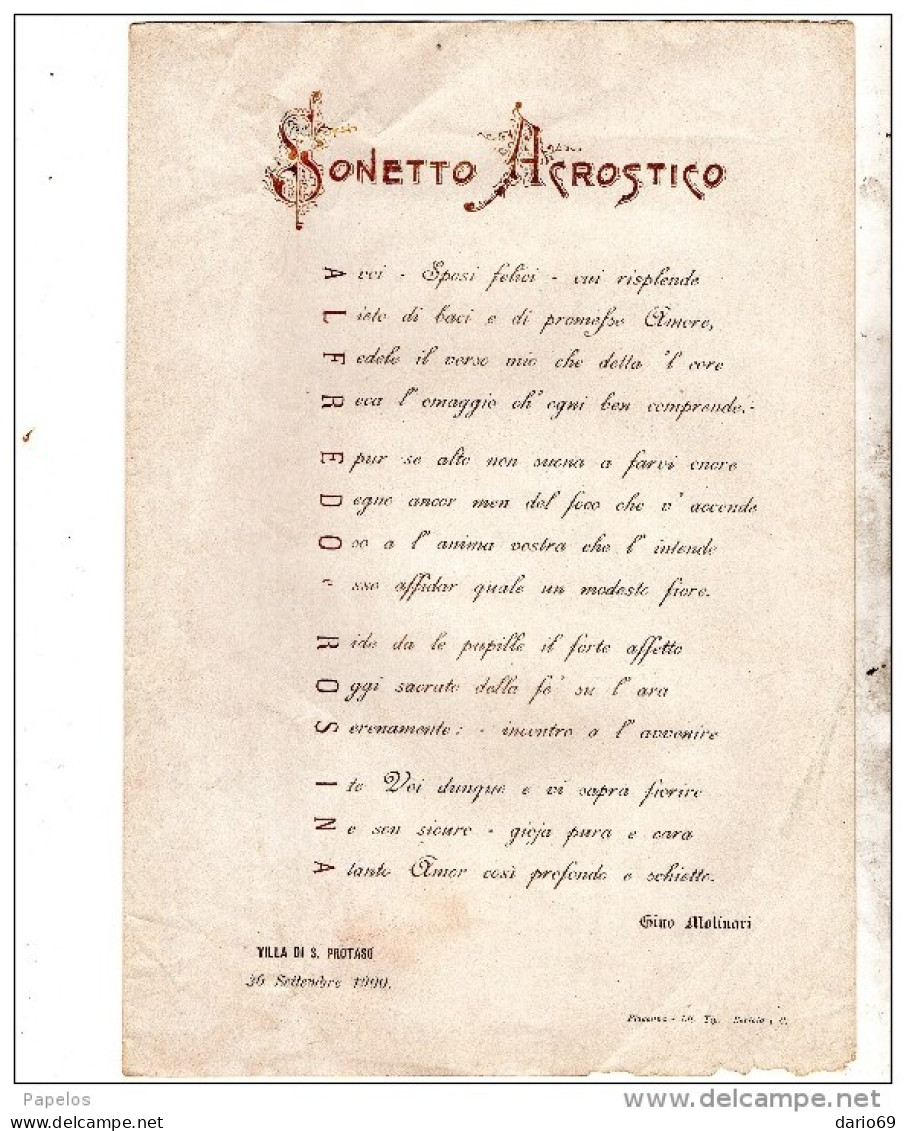 SONETTO ACROSTICO
A voi - Sposi felici - cui risplende
Lieto di baci e di promesse Amore,
Fedele il verso mio che detta 'l core
Reca l' omaggio ch' ogni ben comprende.-
E pur se alto non suona a farvi onore
Degno ancor men del foco che v' accende
Oso a l' anima vostra che l' intende
esso affidar quale un modesto fiore.
Ride da le pupille il forte affetto
Oggi sacrato della fe' su l' ara
Serenamente: - incontro a l' avvenire
Ite Voi dunque e vi sapra fiorire
Ne son sicuro - gioja pura e cara
A tanto Amor così profondo e schietto.
Gino Molinari
VILLA DI S. PROTASO
26 Settembre 1900.
Piacenza - Lit. Tip.
Papelos
delcampe.net
dario69